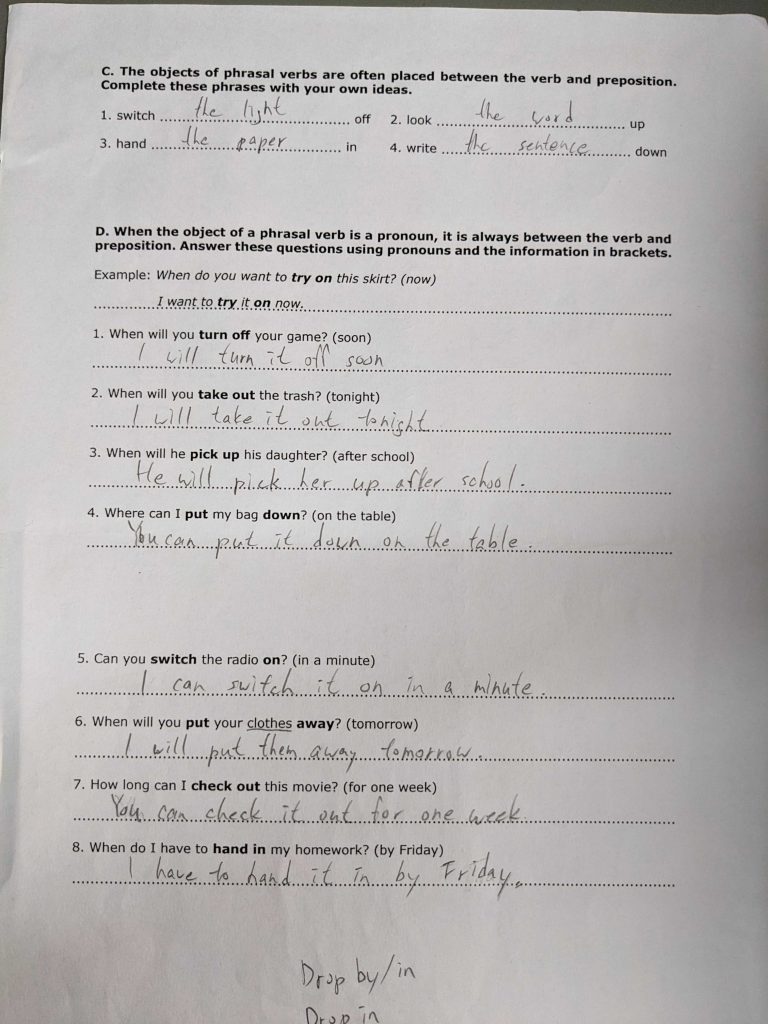 C. The objects of phrasal verbs are often placed between the verb and preposition.
Complete these phrases with your own ideas.
1. switch the light off 2. look the word up
3. hand the paper in 4. write the sentence down
D. When the object of a phrasal verb is a pronoun, it is always between the verb and
preposition. Answer these questions using pronouns and the information in brackets.
Example: When do you want to try on this skirt? (now)
I want to try it on now.
1. When will you turn off your game? (soon)
I will turn it off soon
2. When will you take out the trash? (tonight)
I will take it out tonight
3. When will he pick up his daughter? (after school)
He will pick her up after school.
4. Where can I put my bag down? (on the table)
You can put it down on the table.
5. Can you switch the radio on? (in a minute)
I can switch it on in a minute.
6. When will you put your clothes away? (tomorrow)
I will put them away tomorrow.
7. How long can I check out this movie? (for one week)
You can check it out for one week
8. When do I have to hand in my homework? (by Friday)
I have to hand it in by Friday.
Drop by/in
Drop in